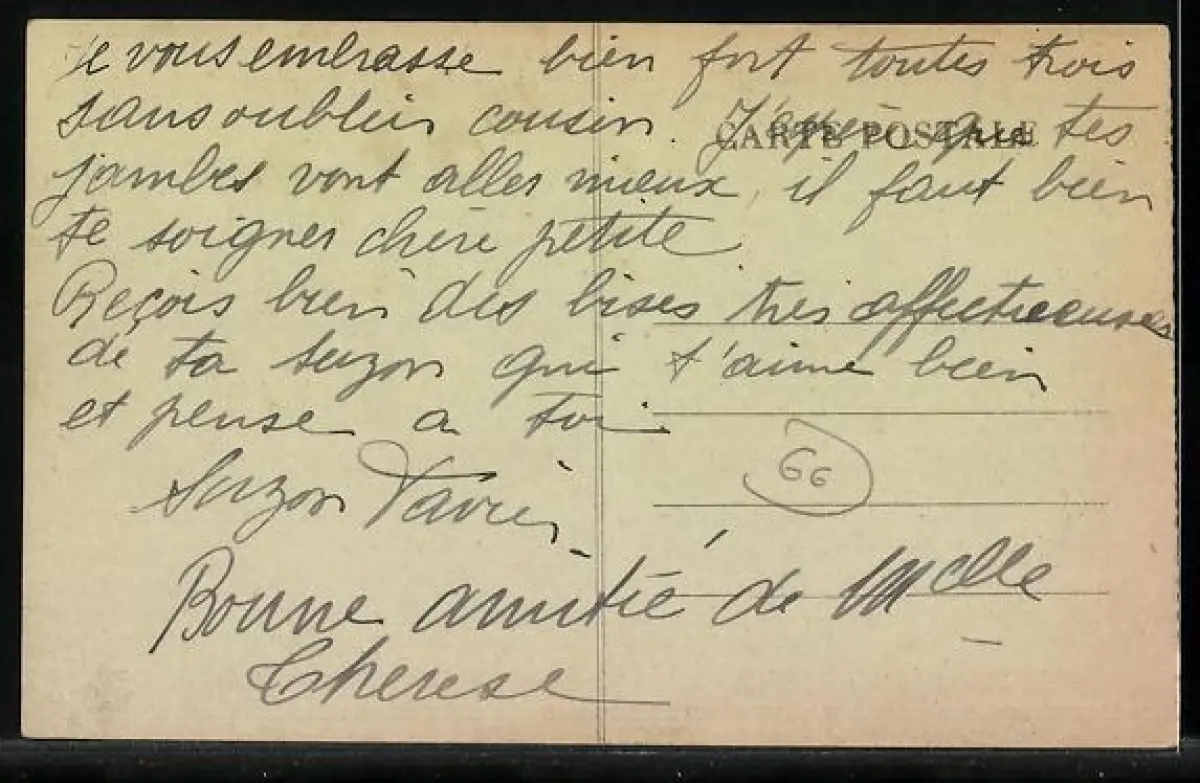 Je vous embrasse bien fort toutes trois
sans oublier cousin. J'espère que tes
CARTE POSTALE
jambes vont aller mieux, il faut bien
te soigner chère petite
Reçois bien des bises très affectueuses
de ta Suzon qui t'aime bien
et pense a toi.
Suzon
66
Bonne amitié de Melle
Therese